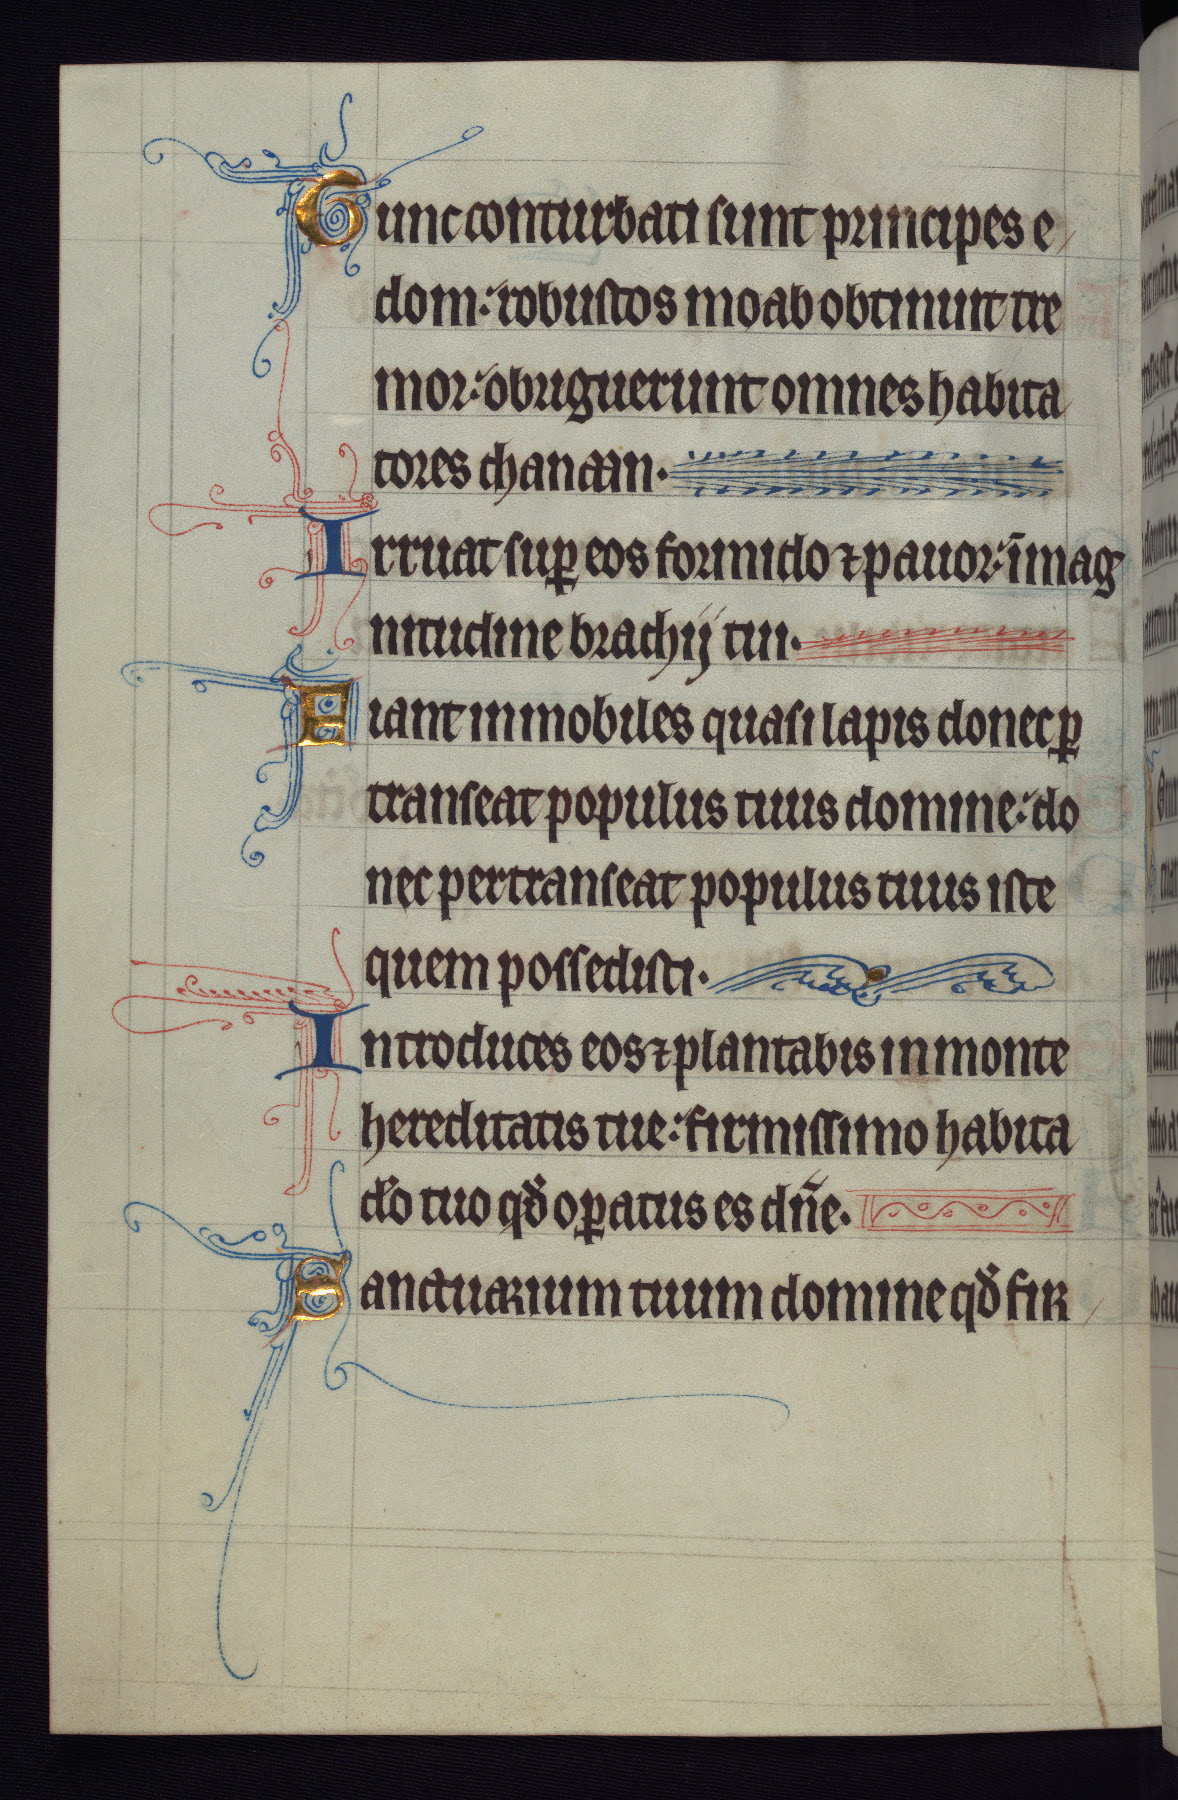 Tunc conturbati sunt principes e
dom: robustos moab obtinuit tre
mor: obriguerunt omnes habita
tores chanaan.
Irruat sup̱ eos formido ⁊ pauor: ī mag
nitudine brachij tui.
Fiant inmobiles quasi lapis donec p̱
transeat populus tuus domine: do
nec pertranseat populus tuus iste
quem possedisti.
Introduces eos ⁊ plantabis in monte
hereditatis tue: firmissimo habita
clo tuo qđ op̱atus es dn̄e.
Sanctuarium tuum domine qđ fir